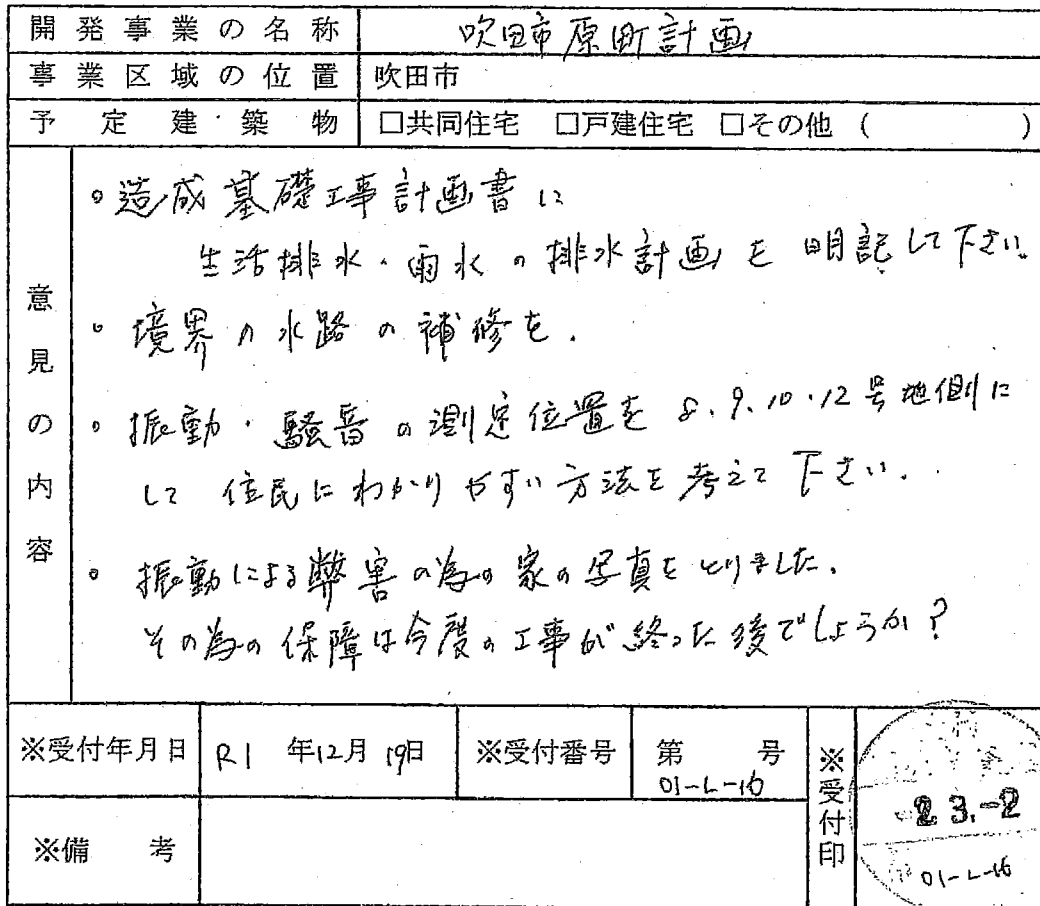 開発事業の名称 吹田市原町計画
事業区域の位置 吹田市
予定建築物 □共同住宅 □戸建住宅 □その他 ( )
意見の内容
。造成基礎工事計画書に
生活排水・雨水の排水計画を明記して下さい。
。境界の水路の補修を.
。振動・騒音の測定位置を8.9.10.12号地側に
して住民にわかりやすい方法を考えて下さい.
。振動による弊害の為の家の写真をとりました.
その為の保障は今度の工事が終った後でしょうか?
※受付年月日 R1年12月19日 ※受付番号 第 号
01-L-16
※受付印
23.-2
01-L-16
※備考